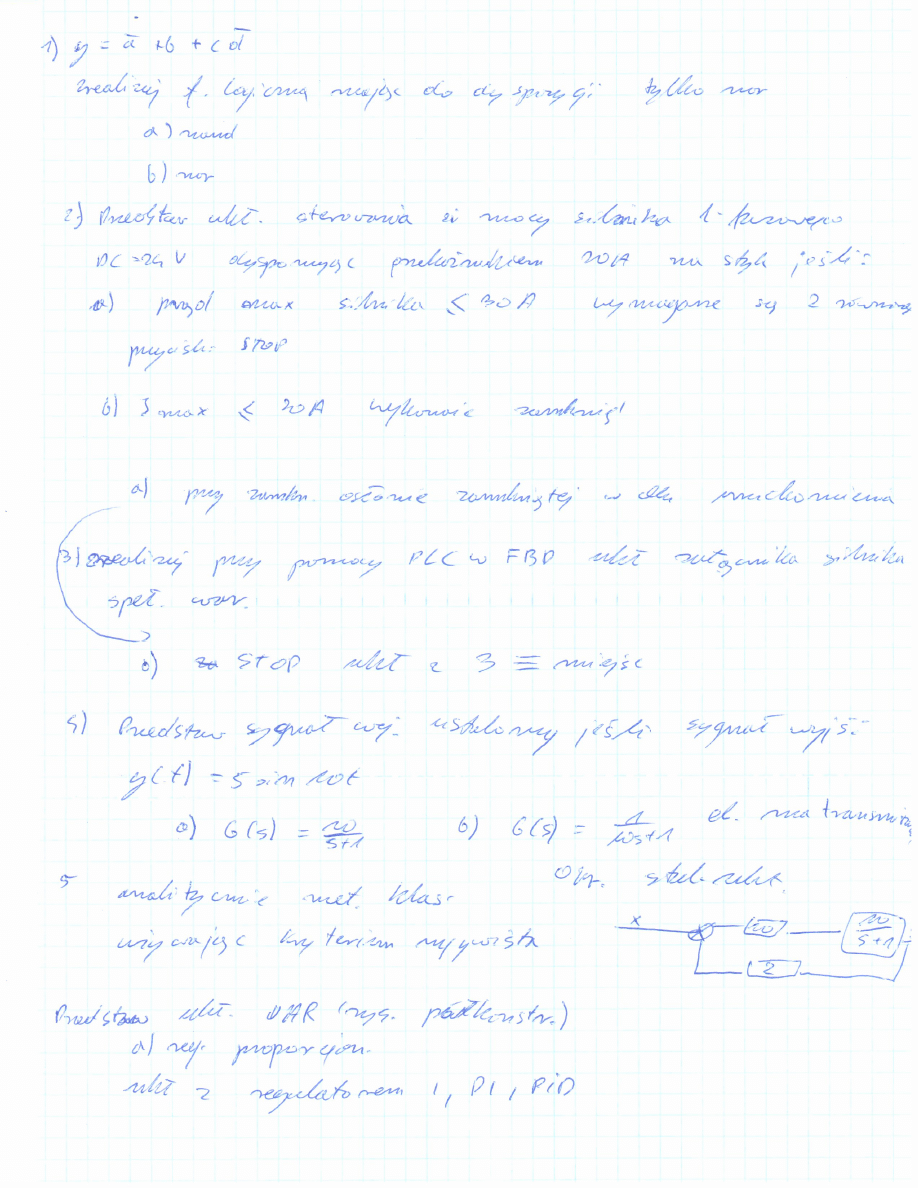 1) y = ā + b + c d̄
zrealizuj f. logiczną mając do dyspozycji tylko nor
a) nand
b) nor
2) Przedstaw ukł. sterowania si mocy silnika 1-fazowego
DC = 24 V dysponując przekaźnikiem 10A na styk jeśli:
a) prąd max silnika ≤ 30 A wymagane są 2
przyciski STOP
b) I max ≤ 20A
a) przy osłonie zamkniętej w uruchomienia
3) zrealizuj przy pomocy PLC w FBD ukł załącznika silnika
speł. war.
b) STOP ukł z 3 ≡ miejsc
4) Przedstaw sygnał wej. ustalony jeśli sygnał wyjś:
y(t) = 5 sin 10t
a) G(s) = 10/s+1 b) G(s) = 1/10s+1 el. ma
5 analitycznie met. klas.
używając kryterium nyquista
x 10 10/s+1
2
Przedstaw ukł. UAR
a) reg. proporcjon.
ukł z regulatorem I, PI, PiD